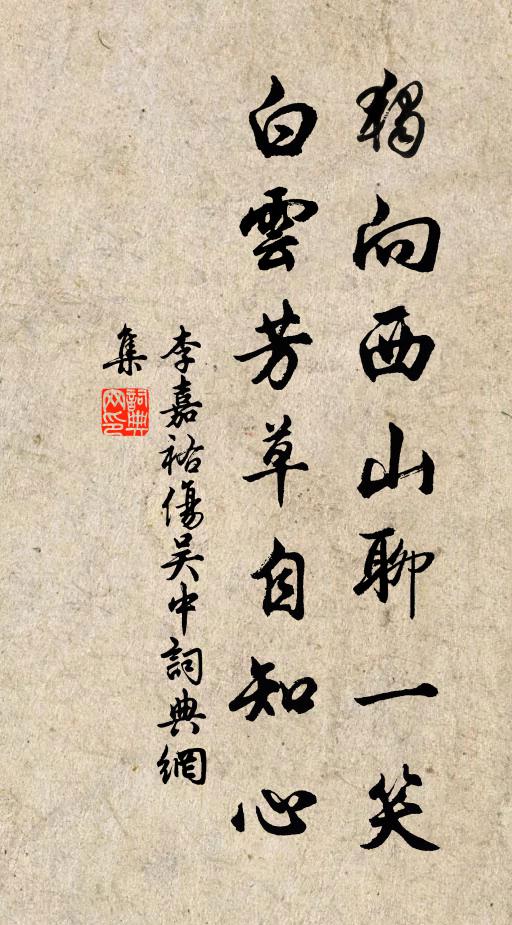 獨向西山聊一笑
白雲芳草自知心
李嘉祐傷吳中詞典網
集
詞典
網印